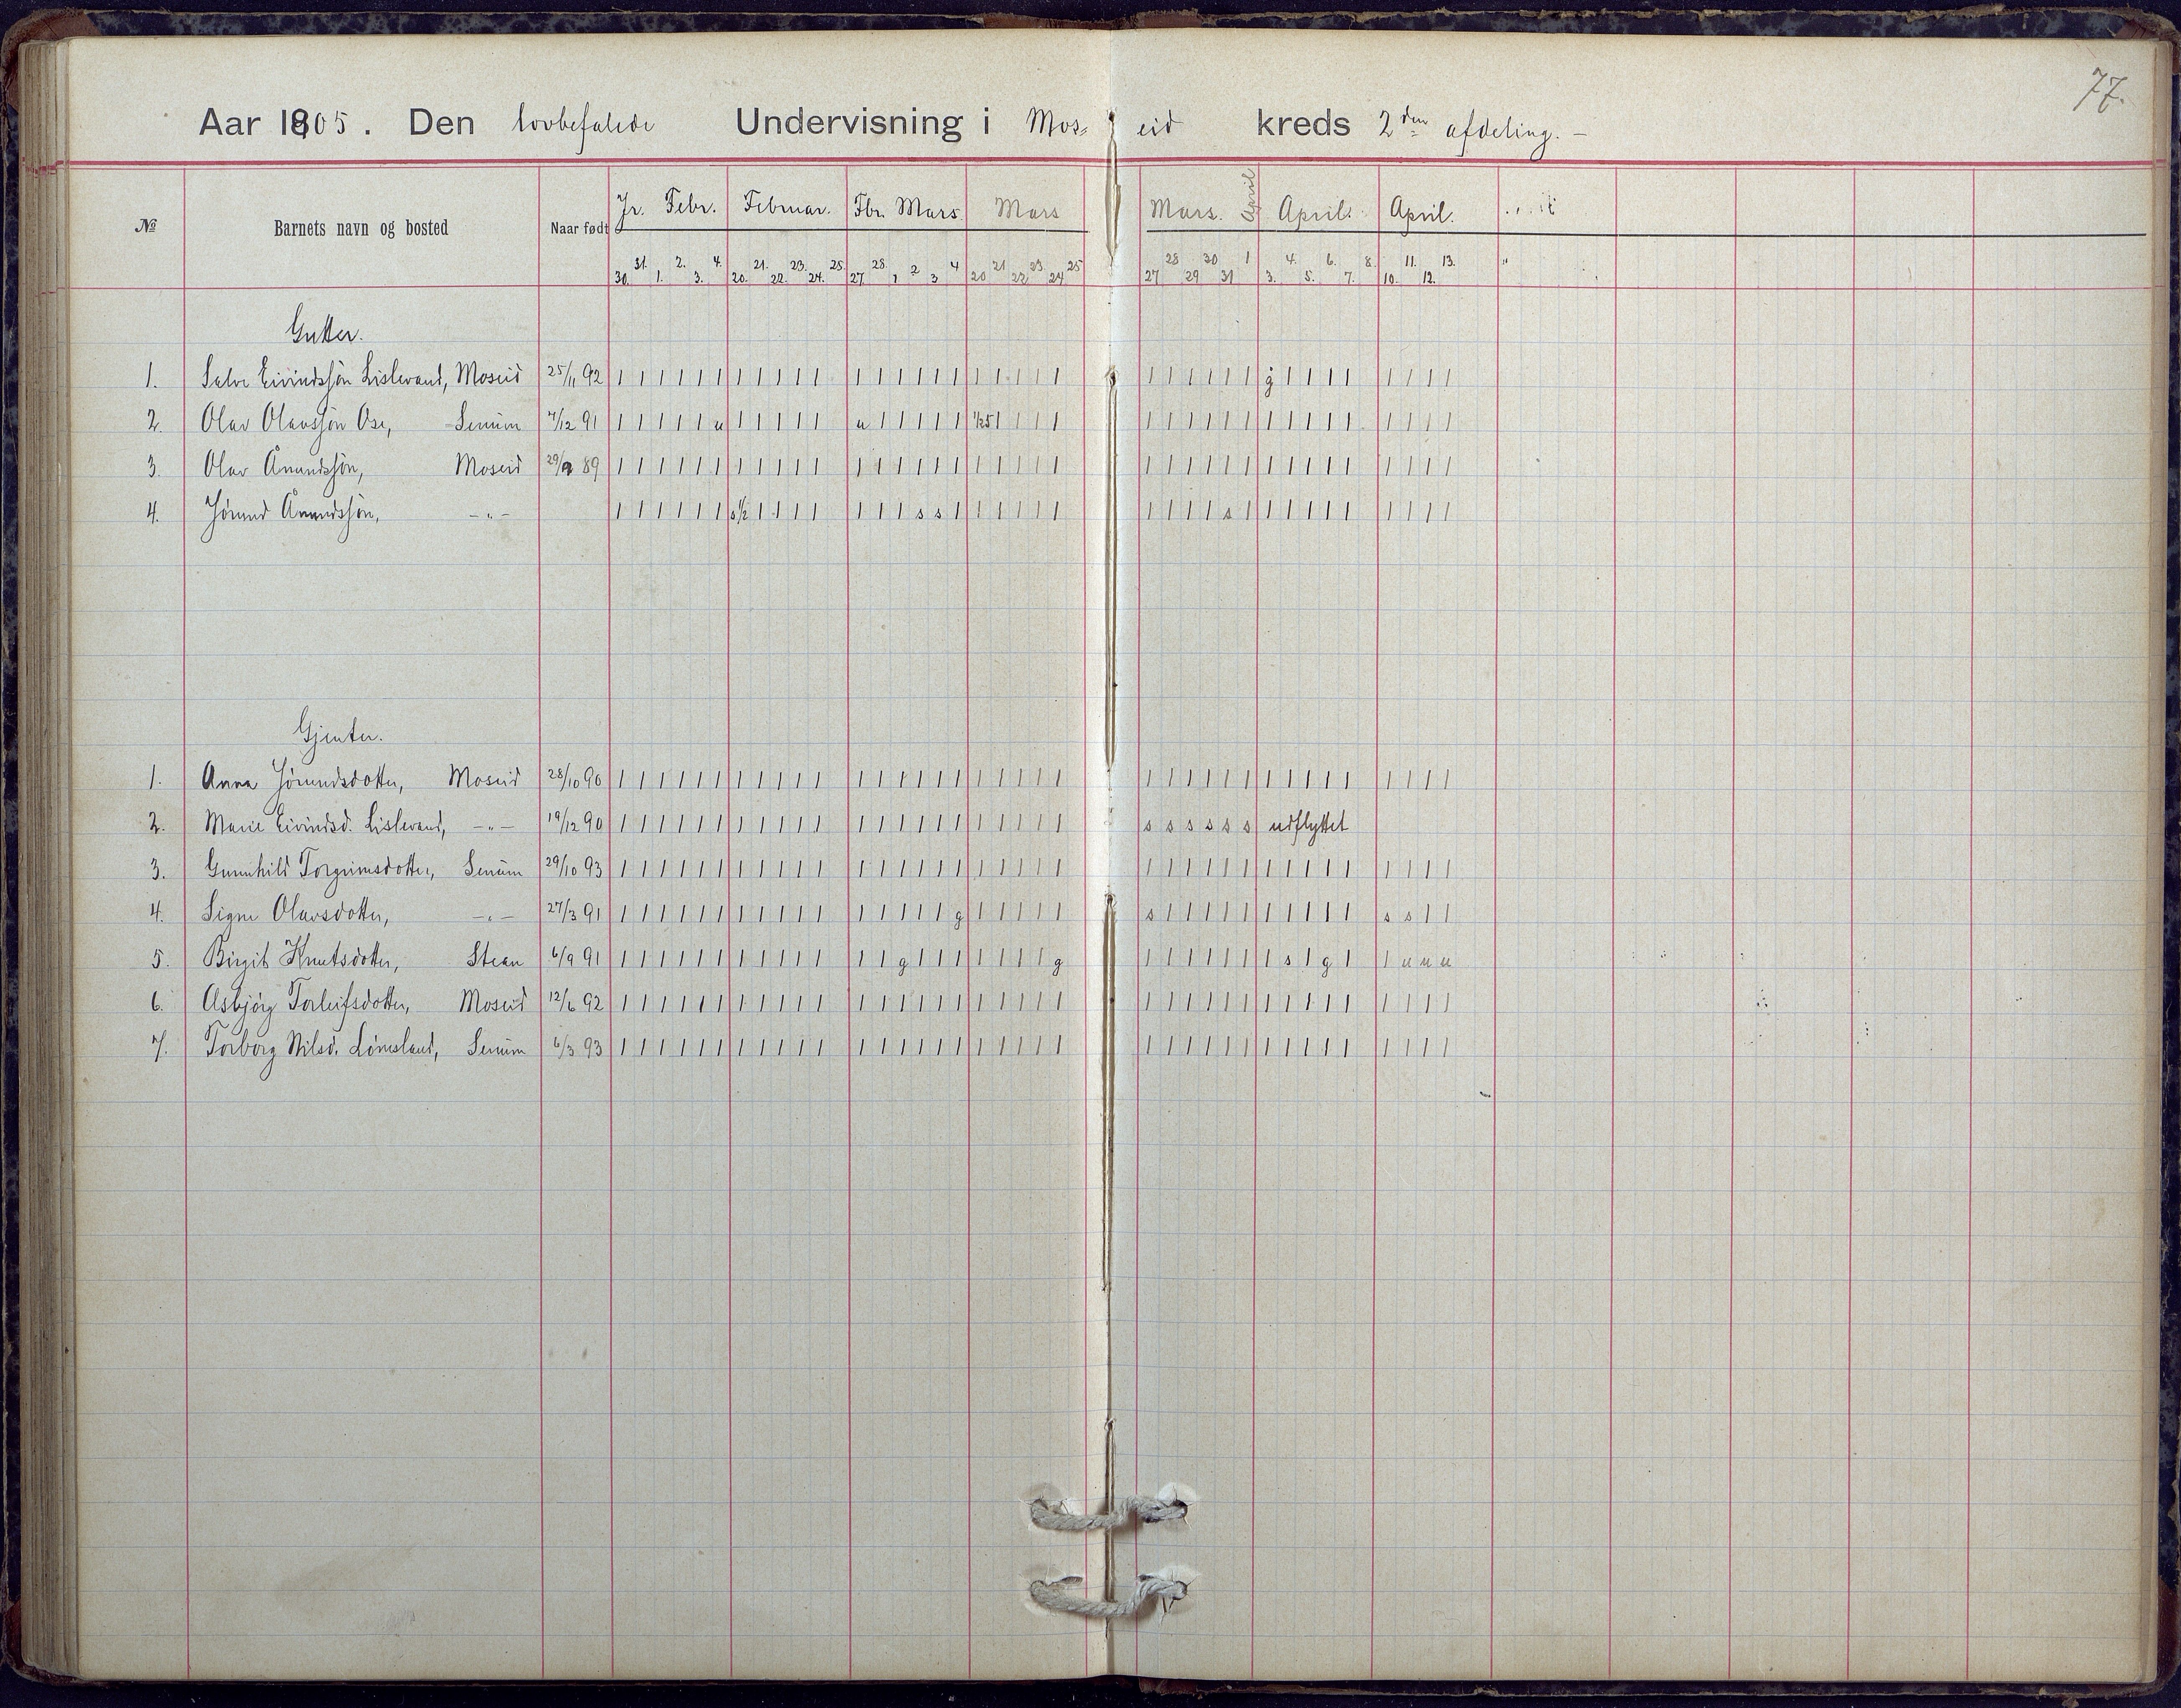 77.
Aar 1905. Den lovbefalede Undervisning i Mos= eid kreds 2den afdeling. –
№ Barnets navn og bosted Naar født Jr. Febr. Februar. Fbr. Mars Mars Mars. April April. April.
30. 31. 1. 2. 3. 4. 20. 21. 22. 23. 24. 25. 27. 28. 1 2 3 4 20 21 22 23 24 25 27 28 29 30 31 1 3. 4. 5. 6. 7. 8. 10. 11. 12. 13.
Gutter.
1. Salve Eivindssøn Lislevand, Moseid 25/11 92 | | | | | | | | | | | | | | | | | | | | | | | | | | | | g | | | | | | | |
2. Olav Olavssøn Ose, Senum 7/12 91 | | | | | u | | | | | u | | | | | 1/25 | | | | | | | | | | | | | | | | | | |
3. Olav Ånundssøn, Moseid 29/9 89 | | | | | | | | | | | | | | | | | | | | | | | | | | | | | | | | | | | | |
4. Jórund Ånundssøn, –„– | | | | | | s½ | | | | | | | s s | | | | | | | | | | s | | | | | | | | | |
Gjenter.
1. Anna Jórundsdotter, Moseid 28/10 90 | | | | | | | | | | | | | | | | | | | | | | | | | | | | | | | | | | | | |
2. Marie Eivindsd. Lislevand, –„– 19/12 90 | | | | | | | | | | | | | | | | | | | | | | s s s s s s udflyttet
3. Gunnhild Torgrimsdotter, Senum 29/10 93 | | | | | | | | | | | | | | | | | | | | | | | | | | | | | | | | | | | | |
4. Signe Olavsdotter, –„– 27/3 91 | | | | | | | | | | | | | | | | g | | | | | s | | | | | | | | | | s s | |
5. Birgit Knutsdotter, Stean 6/9 91 | | | | | | | | | | | | | g | | | | | | | g | | | | | | | s | g | | u u u
6. Asbjörg Torleifsdotter, Moseid 12/6 92 | | | | | | | | | | | | | | | | | | | | | | | | | | | | | | | | | | | | |
7. Torborg Nilsd. Lónesland, Senum 6/3 93 | | | | | | | | | | | | | | | | | | | | | | | | | | | | | | | | | | | | |